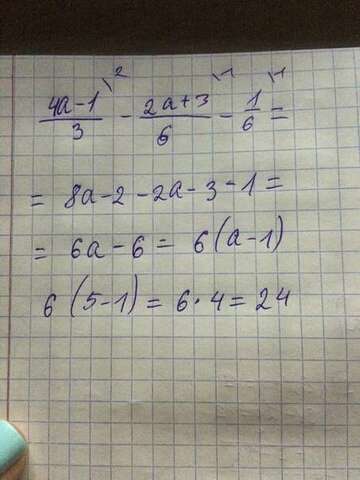 \frac{4a-1}{3}^{\backslash 2} - \frac{2a+3}{6}^{\backslash 1} - \frac{1}{6}^{\backslash 1} =
= 8a-2-2a-3-1 =
= 6a-6 = 6(a-1)
6(5-1) = 6·4 = 24